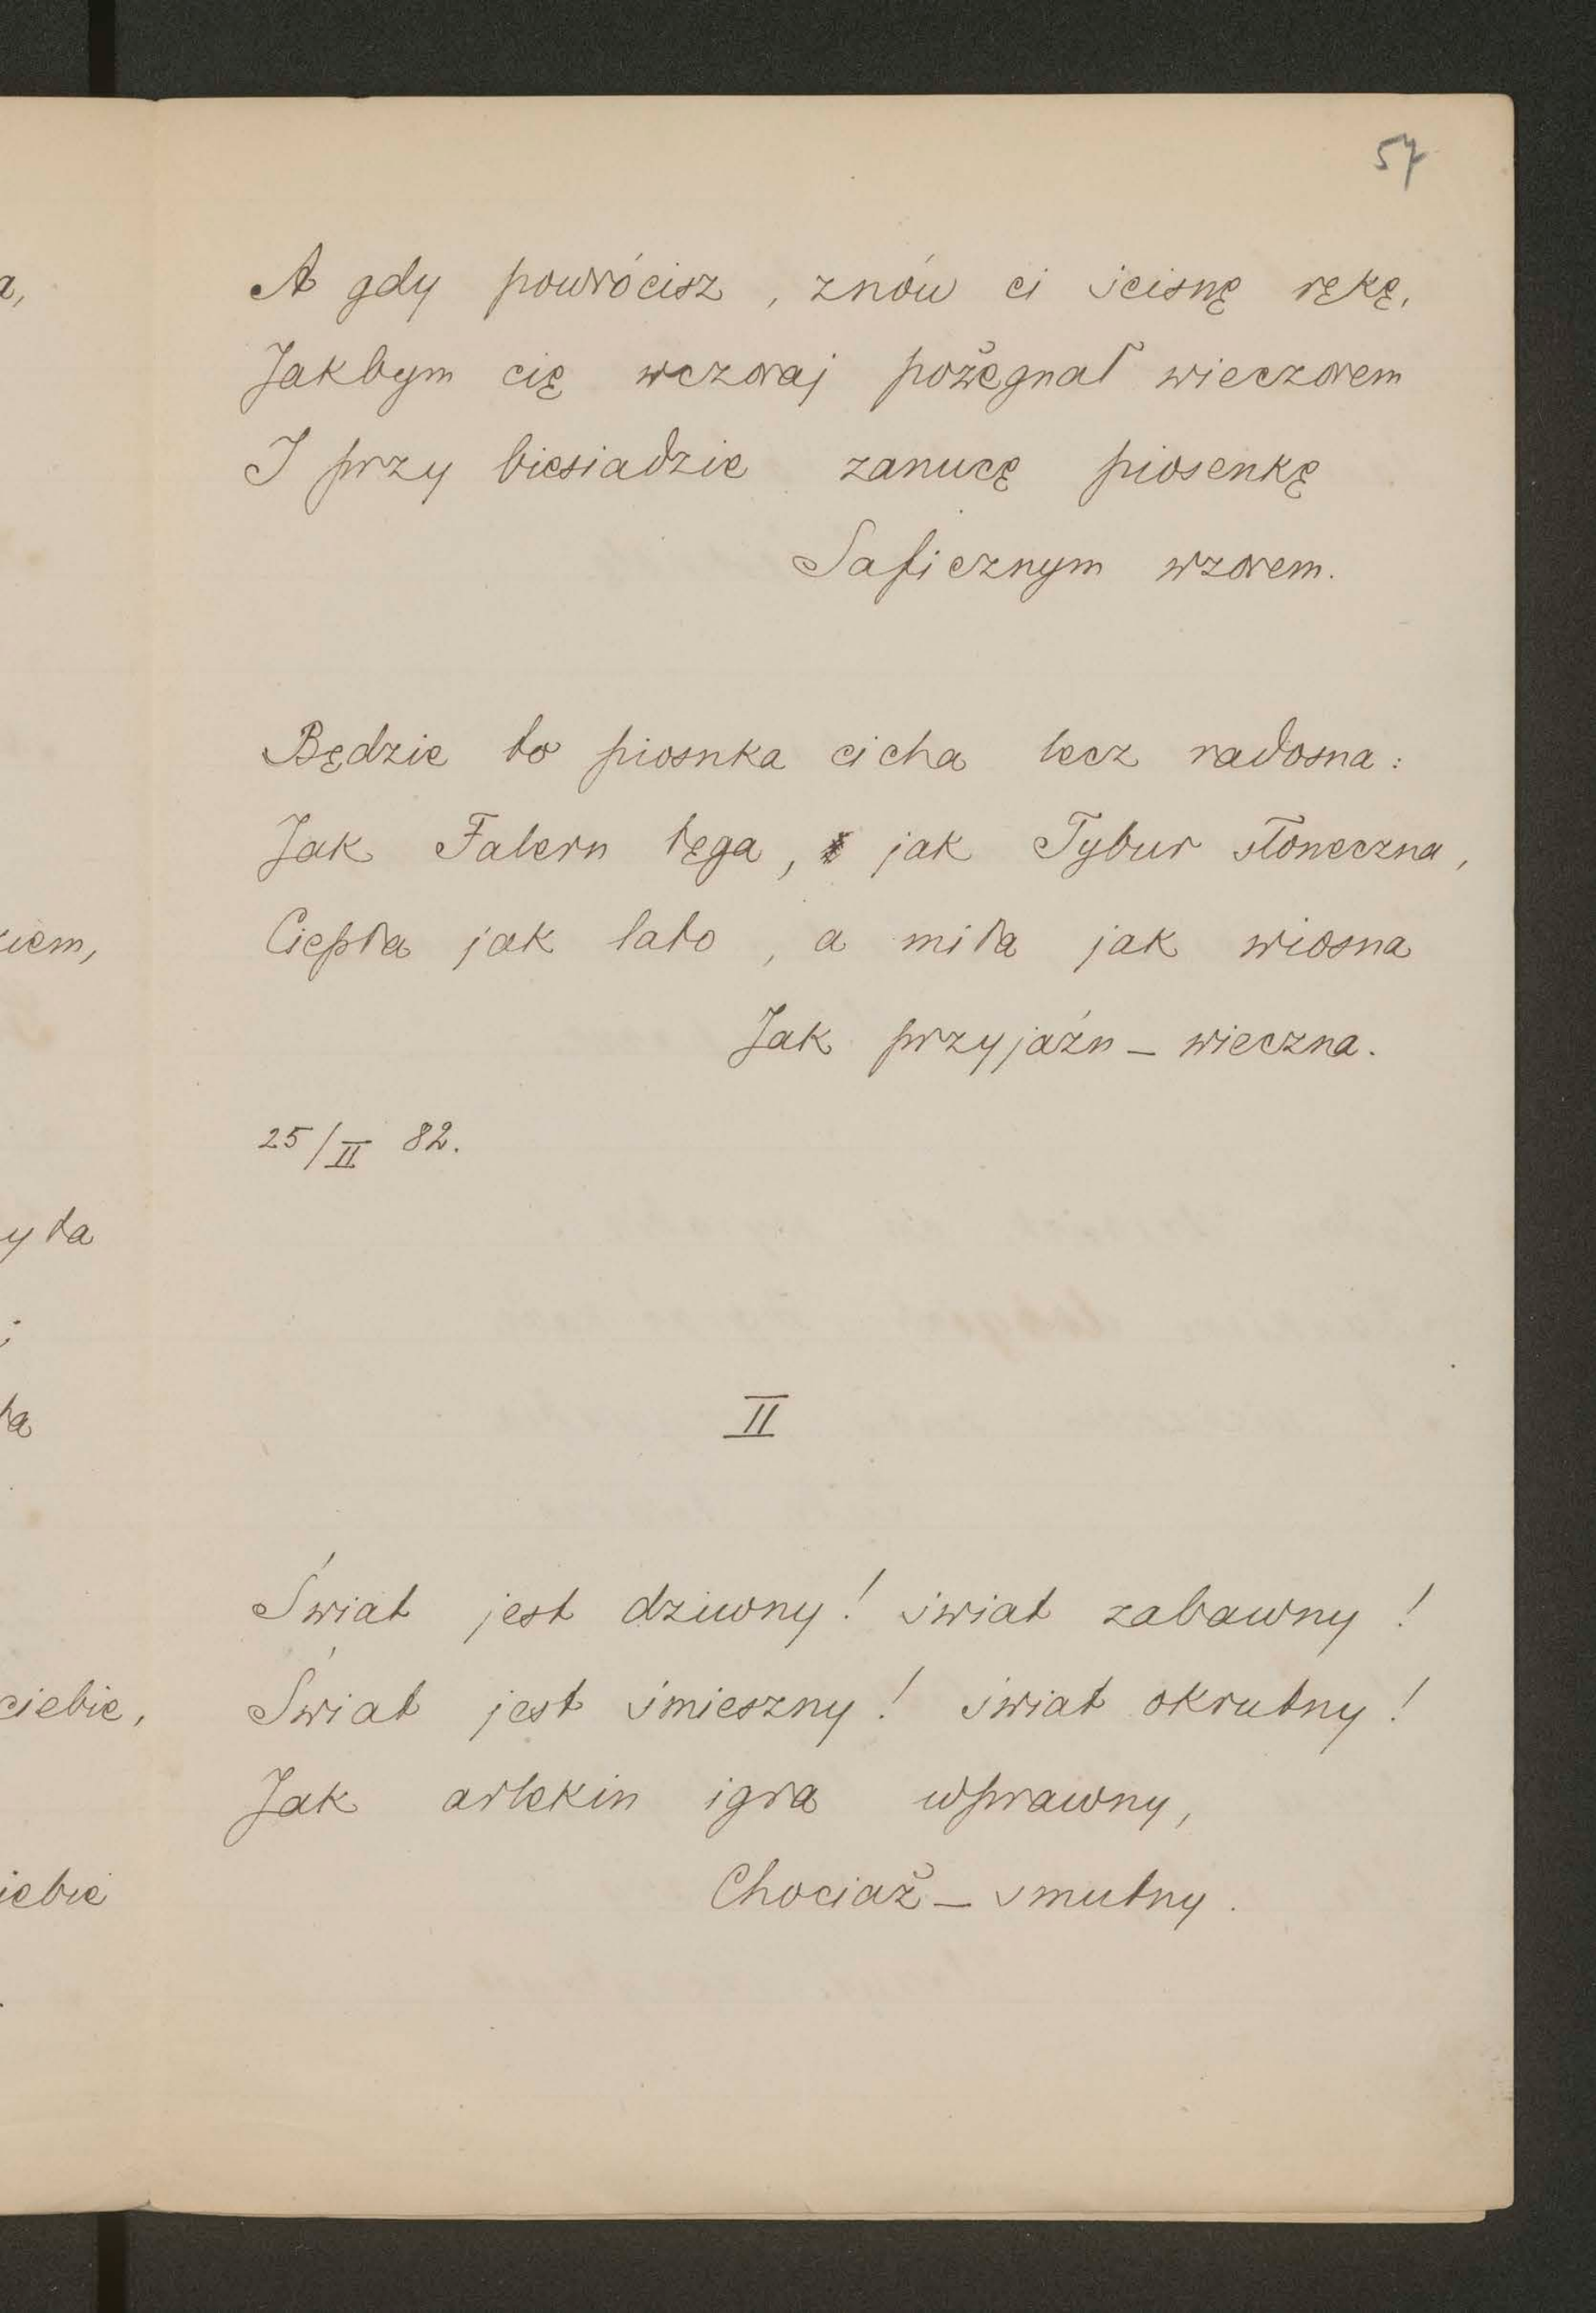 57
a,
A gdy powrócisz, znów ci ścisnę rękę,
Jakbym cię wczoraj pożegnał wieczorem
I przy biesiadzie zanucę piosenkę
Saficznym wzorem.
Będzie to piosnka cicha lecz radosna:
Jak Falern tęga, jak Tybur słoneczna,
iem,
Ciepła jak lato, a miła jak wiosna
Jak przyjaźń – wieczna.
25/II 82.
II
Świat jest dziwny! świat zabawny!
ciebie,
Świat jest śmieszny! świat okrutny!
Jak arlekin igra wprawny,
iebie
Chociaż – smutny.